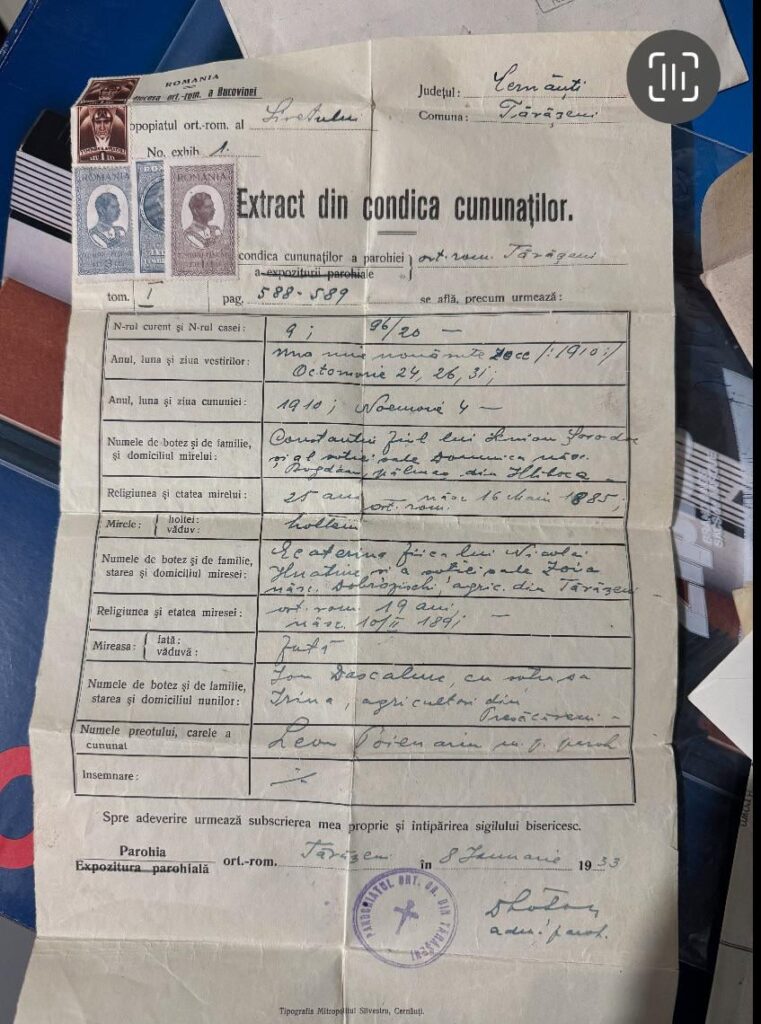 ROMANIA
ort.-rom. a Bucovinei
Județul: Cernăuți
Comuna: Tărășeni
opopiatul ort.-rom. al Siretului
No. exhib. 1.
ROMANIA
ROMANIA
Extract din condica cununaților.
condica cununaților a parohiei
a expoziturii parohiale
ort. rom. Tărășeni
tom. I pag. 588-589 se află, precum urmează:
N-rul curent și N-rul casei: 9; 96/20 —
Anul, luna și ziua vestirilor: zece /:1910:/
Octomvrie 24, 26, 31;
Anul, luna și ziua cununiei: 1910; Noemvrie 4 —
Numele de botez și de familie,
și domiciliul mirelui:
Constantin fiul lui Simion
și al soției sale Domnica născ.
Bogdan, din Hliboca
Religiunea și etatea mirelui: 25 ani născ. 16 1885;
ort. rom.
Mirele: holtei:
văduv:
holteiu
Numele de botez și de familie,
starea și domiciliul miresei:
Ecaterina fiica lui Nicolai
Hnatiuc și a soției sale Zoia
născ. agric. din Tărășeni
Religiunea și etatea miresei: ort. rom. 19 ani;
născ. 10/II 891;
Mireasa: fată:
văduvă:
fată
Numele de botez și de familie,
starea și domiciliul nunilor:
Ion Dascaliuc, cu soția sa
Irina, agricultori din
Numele preotului, carele a
cununat
Leon Poienariu m. p. paroh
Insemnare:
Spre adeverire urmează subscrierea mea proprie și întipărirea sigilului bisericesc.
Parohia
Expozitura parohială
ort.-rom. Tărășeni în 8 Ianuarie 1933
PAROHIATUL ORT. OR. DIN TĂRĂȘENI
adm. paroh.
Tipografia Mitropolitul Silvestru, Cernăuți.